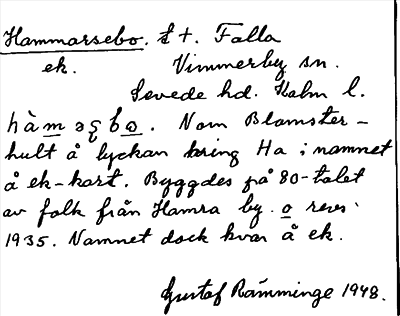 Hammarsebo. t. Falla
ek. Vimmerby sn.
Sevede hd. Kalm l.
hàməsbo. Nom Blomster-
hult å lyckan kring Ha; namnet
å ek-kart. Byggdes på 80-talet
av folk från Hamra by. o revs
1935. Namnet dock kvar å ek.
Gustaf Rämminge 1948.